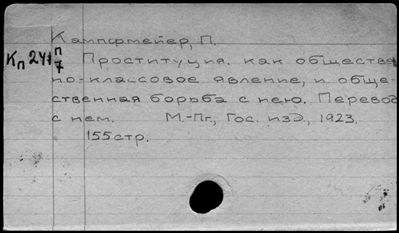 Кампфмейер, П.
Кп 241 п/7
Проституция, как обществен
но-классовое явление, и обще-
ственная борьба с нею. Перевод
с нем. М.-Пг., Гос. изд., 1923.
155 стр.